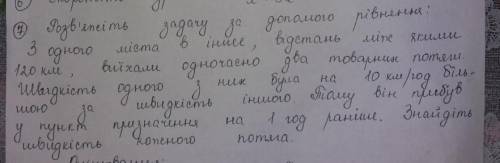 7 Розв'яжіть задачу за допомого рівняння:
З одного міста в інше, відстань між якими
120 км, виїхали одночасно два товарник потяги.
Швидкість одного з них була на 10 км/год біль-
шою за швидкість іншого. Тому він прибув
у пункт призначення на 1 год раніше. Знайдіть
швидкість кожного потяга.